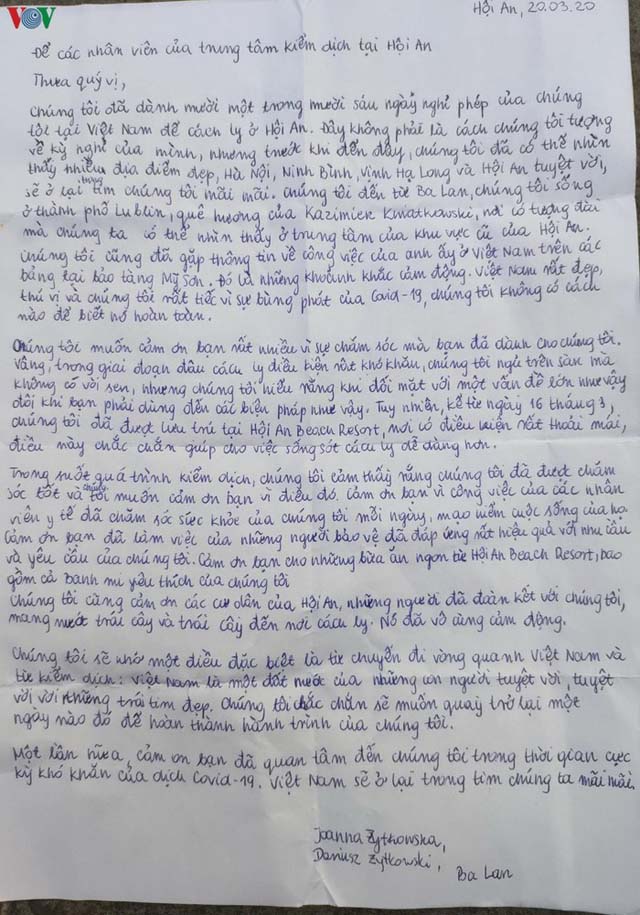 VOV
Hội An, 20.03.20
Để các nhân viên của trung tâm kiểm dịch tại Hội An
Thưa quý vị,
Chúng tôi đã dành mười một trong mười sáu ngày nghỉ phép của chúng
tôi tại Việt Nam để cách ly ở Hội An. Đây không phải là cách chúng tôi tưởng
về kỳ nghỉ của mình, nhưng trước khi đến đây, chúng tôi đã có thể nhìn
thấy nhiều địa điểm đẹp, Hà Nội, Ninh Bình, Vịnh Hạ Long và Hội An tuyệt vời,
sẽ ở lại trong tim chúng tôi mãi mãi. Chúng tôi đến từ Ba Lan, chúng tôi sống
ở thành phố Lublin, quê hương của Kazimierk Kwiatkowski, nơi có tượng đài
mà chúng ta có thể nhìn thấy ở trung tâm của khu vực cũ của Hội An.
Chúng tôi cũng đã gặp thông tin về công việc của anh ấy ở Việt Nam trên các
bảng tại bảo tàng Mỹ Sơn. Đó là những khoảnh khắc cảm động. Việt Nam rất đẹp,
thú vị và chúng tôi rất tiếc vì sự bùng phát của Covid-19, chúng tôi không có cách
nào để biết nó hoàn toàn.
Chúng tôi muốn cảm ơn bạn rất nhiều vì sự chăm sóc mà bạn đã dành cho chúng tôi.
Vâng, trong giai đoạn đầu cách ly điều kiện rất khó khăn, chúng tôi ngủ trên sàn mà
không có vòi sen, nhưng chúng tôi hiểu rằng khi đối mặt với một vấn đề lớn như vậy
đôi khi bạn phải dùng đến các biện pháp như vậy. Tuy nhiên, kể từ ngày 16 tháng 3,
chúng tôi đã được lưu trú tại Hội An Beach Resort, nơi có điều kiện rất thoải mái,
điều này chắc chắn giúp cho việc sống sót cách ly dễ dàng hơn.
Trong suốt quá trình kiểm dịch, chúng tôi cảm thấy rằng chúng tôi đã được chăm
sóc tốt và chúng tôi muốn cảm ơn bạn vì điều đó. Cảm ơn bạn vì công việc của các nhân
viên y tế đã chăm sóc sức khỏe của chúng tôi mỗi ngày, mạo hiểm cuộc sống của họ.
Cảm ơn bạn đã làm việc của những người bảo vệ đã đáp ứng rất hiệu quả với nhu cầu
và yêu cầu của chúng tôi. Cảm ơn bạn cho những bữa ăn ngon từ Hội An Beach Resort, bao
gồm cả banh mi yêu thích của chúng tôi
Chúng tôi cũng cảm ơn các cư dân của Hội An, những người đã đoàn kết với chúng tôi,
mang nước trái cây và trái cây đến nơi cách ly. Nó đã vô cùng cảm động.
Chúng tôi sẽ nhớ một điều đặc biệt là từ chuyến đi vòng quanh Việt Nam và
từ kiểm dịch: Việt Nam là một đất nước của những con người tuyệt vời, tuyệt
vời với những trái tim đẹp. Chúng tôi chắc chắn sẽ muốn quay trở lại một
ngày nào đó để hoàn thành hành trình của chúng tôi.
Một lần nữa, cảm ơn bạn đã quan tâm đến chúng tôi trong thời gian cực
kỳ khó khăn của dịch Covid-19. Việt Nam sẽ ở lại trong tim chúng ta mãi mãi.
Joanna Żytkowska,
Dariusz Żytkowski,
Ba Lan